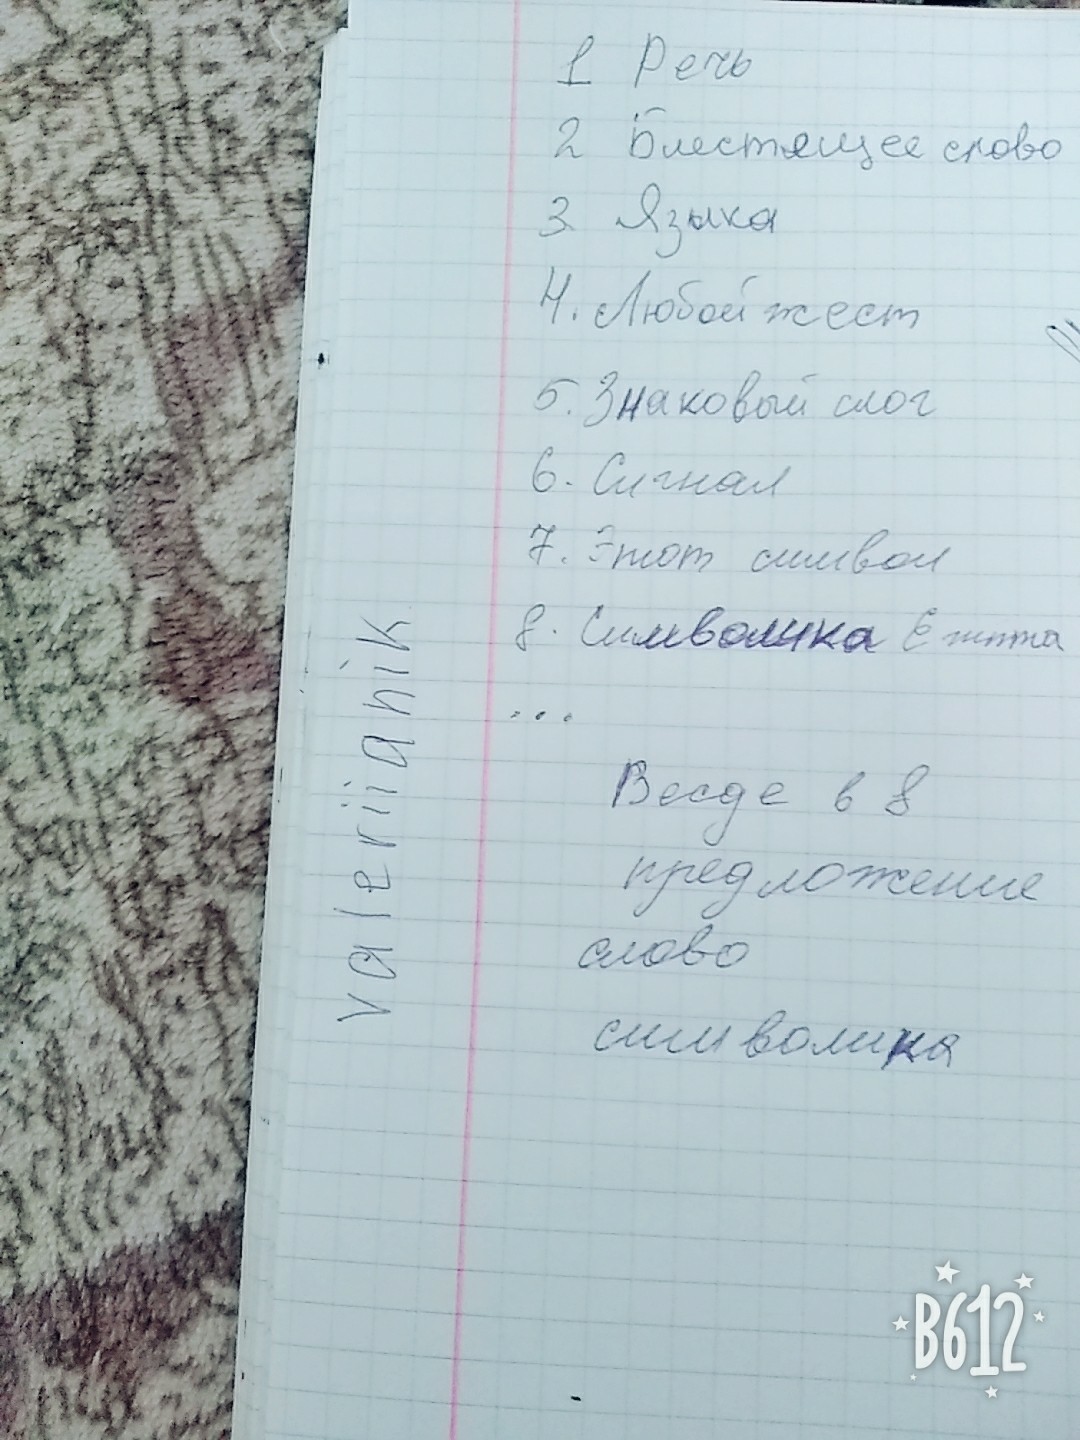 1 Речь
2 Блестящее слово
3. Языка
4. Любой жест
5. Знаковый слог
6. Сигнал
7. Этот символ
8. Символика Египта
...
Весде в 8
предложение
слово
символика
valeriianik
B612